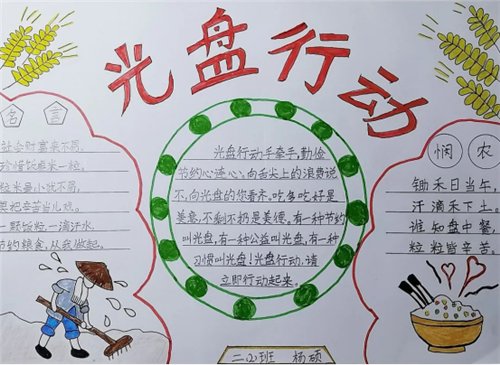 光盘行动
名言
社会时富来不易,
珍惜饭桌一粒,
粒米虽小犹不易,
莫把辛苦当儿戏。
一颗饭粒一滴汗水,
节约粮食,从我做起。
光盘行动手牵手,勤俭
节约心连心,向舌尖上的浪费说
不,向光盘的你看齐。吃多吃好是
美意,不剩不扔是美德,有一种节约
叫光盘,有一种公益叫光盘,有一种
习惯叫光盘!光盘行动,请
立即行动起来。
悯农
锄禾日当午,
汗滴禾下土。
谁知盘中餐,
粒粒皆辛苦。
二(2)班 杨硕